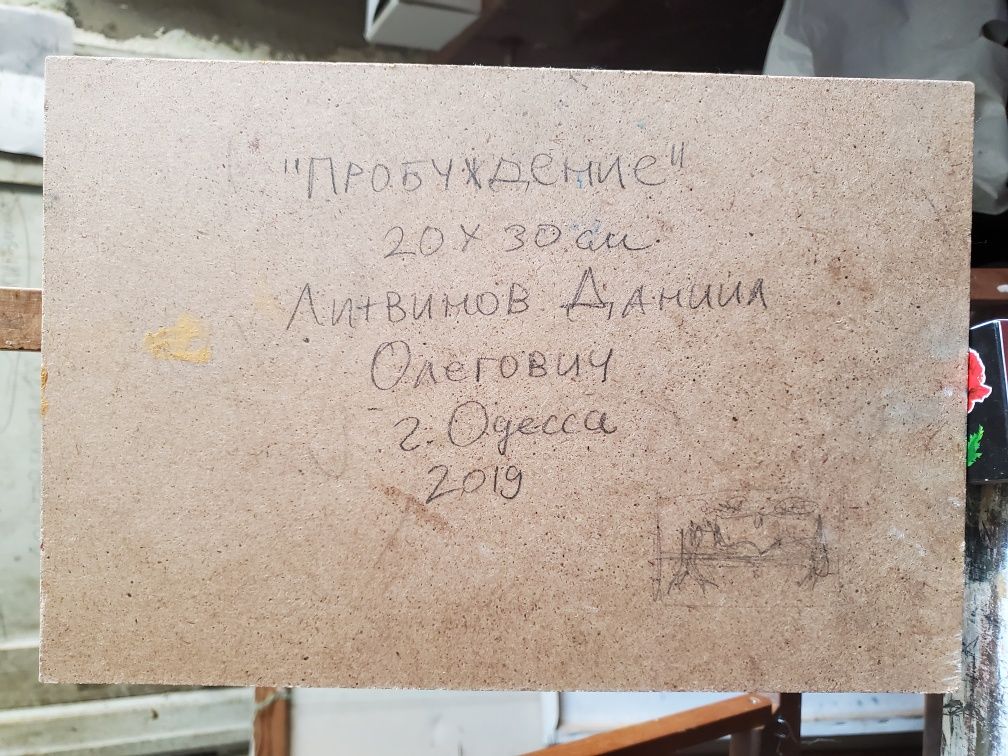 "ПРОБУЖДЕНИЕ"
20 х 30 см
Литвинов Даниил
Олегович
г. Одесса
2019